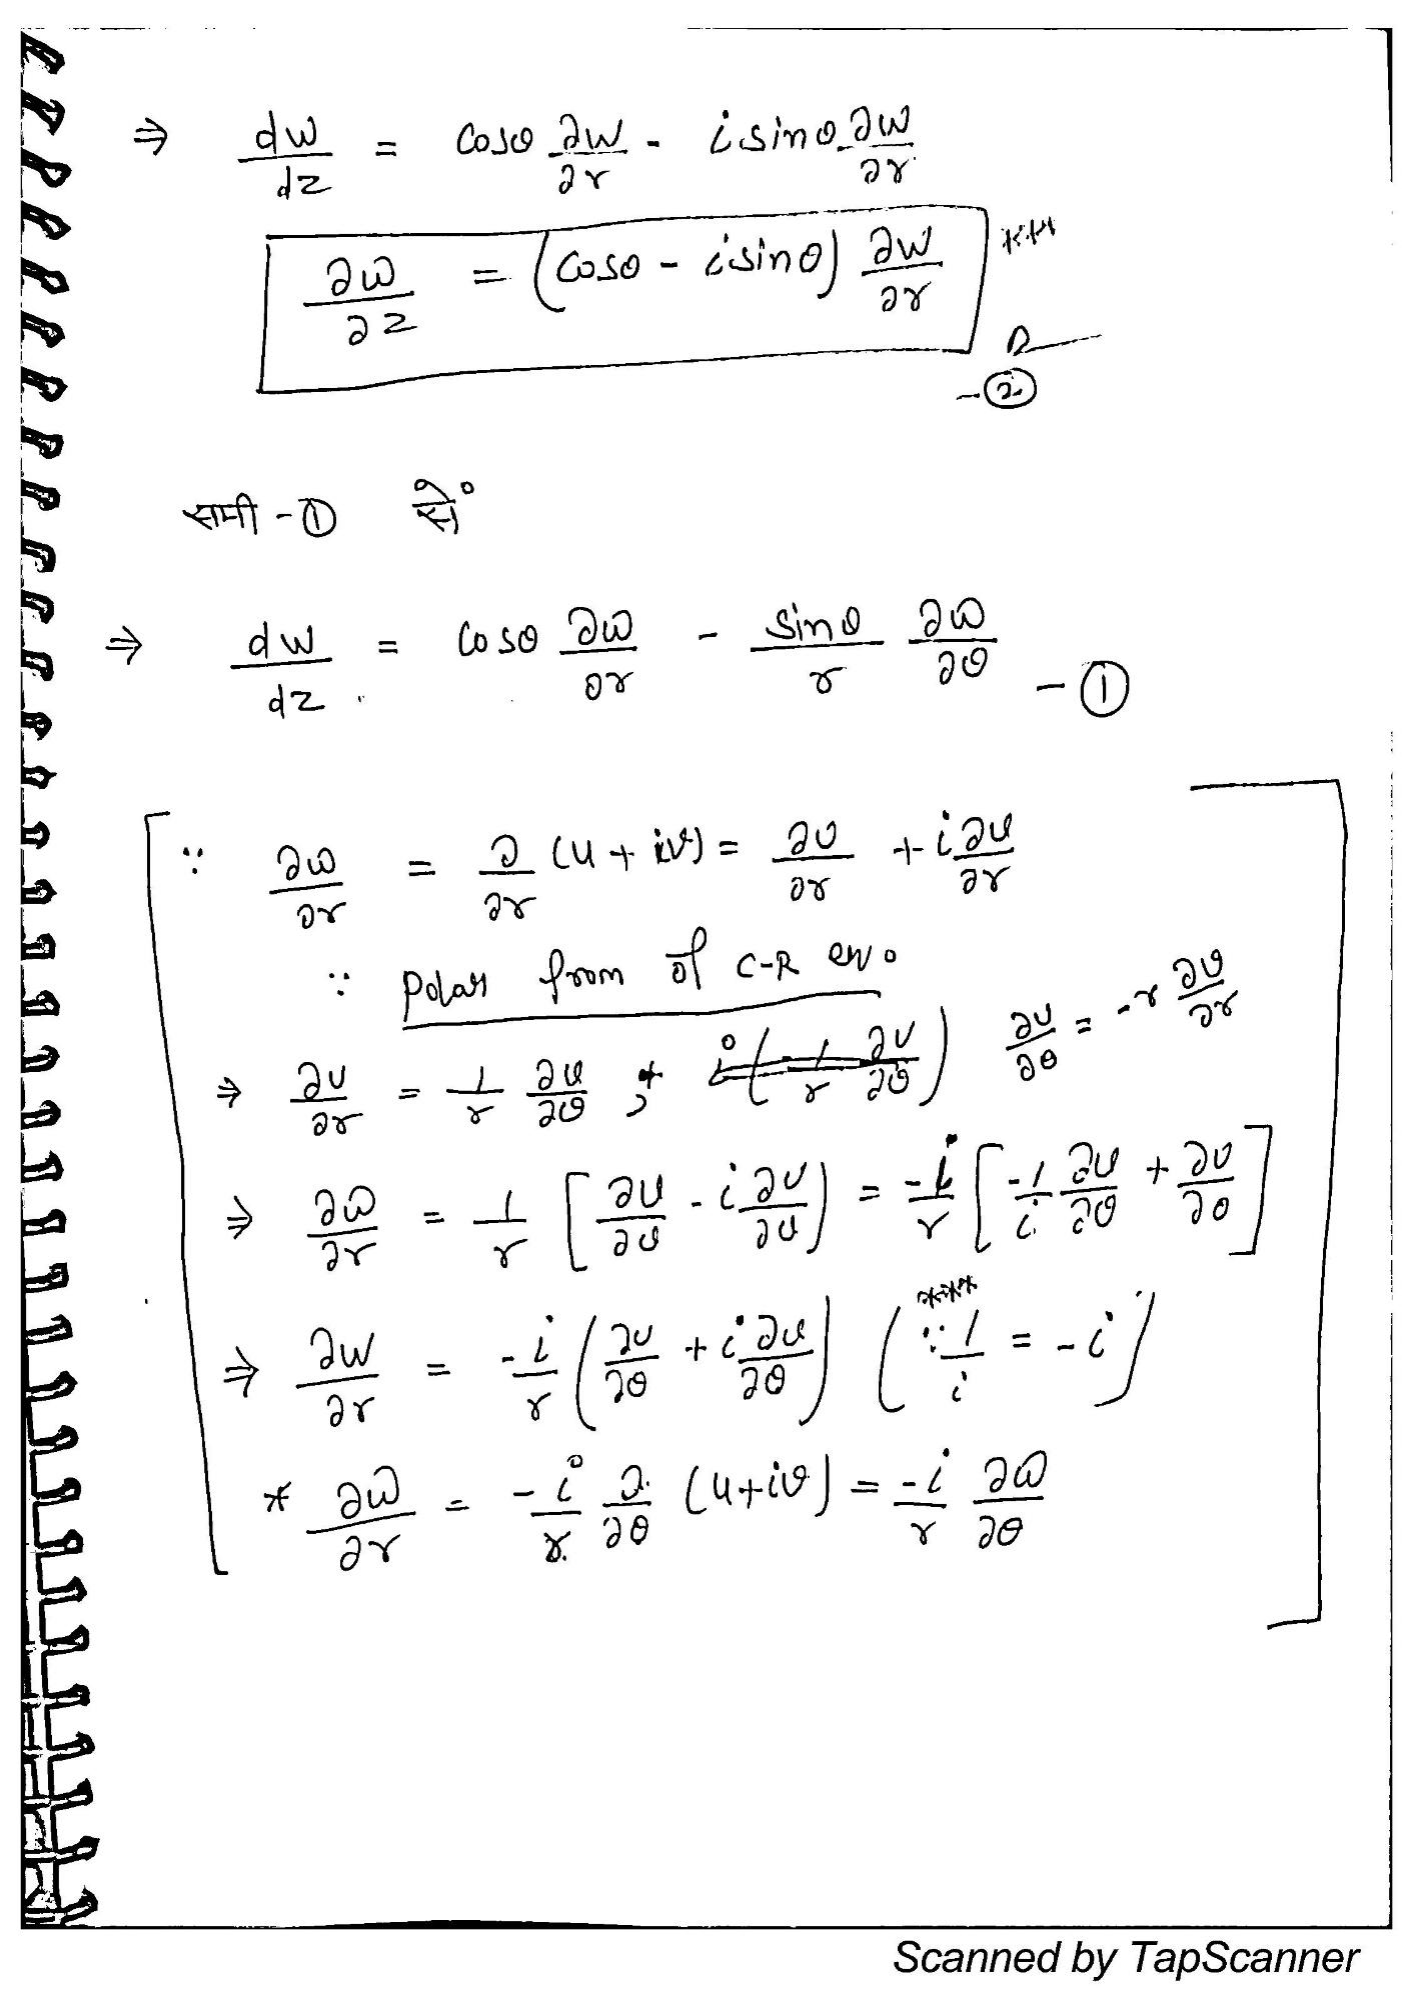 ⇒ dw/dz = cosθ ∂w/∂r - i sinθ ∂w/∂r
∂w/∂z = (cosθ - i sinθ) ∂w/∂r ***
-②
समी -① से
⇒ dw/dz = cosθ ∂w/∂r - sinθ/r ∂w/∂θ -①
∵ ∂w/∂r = ∂/∂r (u + iv) = ∂u/∂r + i ∂v/∂r
∵ Polar from of C-R
⇒ ∂u/∂r = 1/r ∂v/∂θ ; ∂u/∂θ = -r ∂v/∂r
⇒ ∂w/∂r = 1/r [∂v/∂θ - i ∂u/∂θ) = -i/r [-1/i ∂v/∂θ + ∂u/∂θ]
⇒ ∂w/∂r = -i/r (∂u/∂θ + i ∂v/∂θ) (∵ 1/i = -i) ***
* ∂w/∂r = -i/r ∂/∂θ (u+iv) = -i/r ∂w/∂θ
Scanned by TapScanner